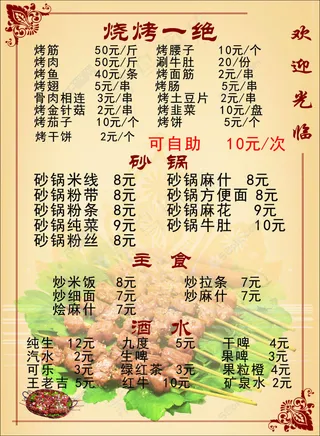 烧烤一绝
欢迎光临
烤筋 50元/斤 烤腰子 10元/个
烤肉 50元/斤 涮牛肚 20/份
烤鱼 40元/条 烤面筋 2元/串
烤翅 5元/串 烤肠 5元/串
骨肉相连 3元/串 烤土豆片 2元/串
烤金针菇 2元/串 烤韭菜 10元/盘
烤茄子 10元/个 烤饼 5元/个
烤干饼 2元/个
可自助 10元/次
砂锅
砂锅米线 8元 砂锅麻什 8元
砂锅粉带 8元 砂锅方便面 8元
砂锅粉条 8元 砂锅麻花 9元
砂锅纯菜 9元 砂锅牛肚 10元
砂锅粉丝 8元
主食
炒米饭 8元 炒拉条 7元
炒细面 7元 炒麻什 7元
烩麻什 7元
酒水
纯生 12元 九度 5元 干啤 4元
汽水 2元 生啤 果啤 3元
可乐 3元 绿红茶 3元 果粒橙 4元
王老吉 5元 红牛 10元 矿泉水 2元